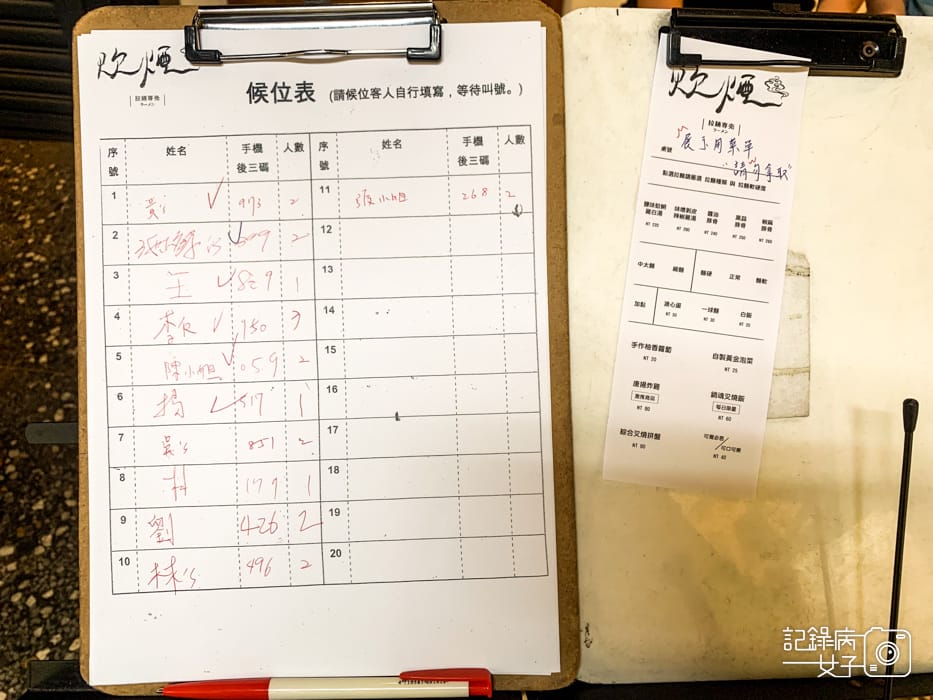 炊煙
拉麵專売
ラーメン
候位表 (請候位客人自行填寫,等待叫號。)
序號 姓名 手機後三碼 人數 序號 姓名 手機後三碼 人數
1 973 2
11 張小姐 268 2
2 2
12
3 王 829 1
13
4 李 780 3
14
5 陳小姐 059 2
15
6 楊 517 1
16
7 吳's 851 2
17
8 林 179 1
18
9 劉 426 2
19
10 林's 496 2
20
炊煙
拉麵專売
ラーメン
桌號
展示用菜單
請勿拿取
點選拉麵請圈選 拉麵種類 與 拉麵軟硬度
鹽味蛤蜊雞白湯 味噌剝皮辣椒雞湯 醬油豚骨 黑蒜豚骨 椒麻豚骨
中太麵 細麵 麵硬 正常 麵軟
加點 溏心蛋 一球麵 白飯
NT 30 NT 30 NT 20
手作柚香蘿蔔 自製黃金泡菜
NT 20 NT 25
唐揚炸雞 鎮魂叉燒飯
每日限量
NT 80 NT 60
綜合叉燒拼盤 可爾必思/可口可樂
NT 40
記錄病
女子